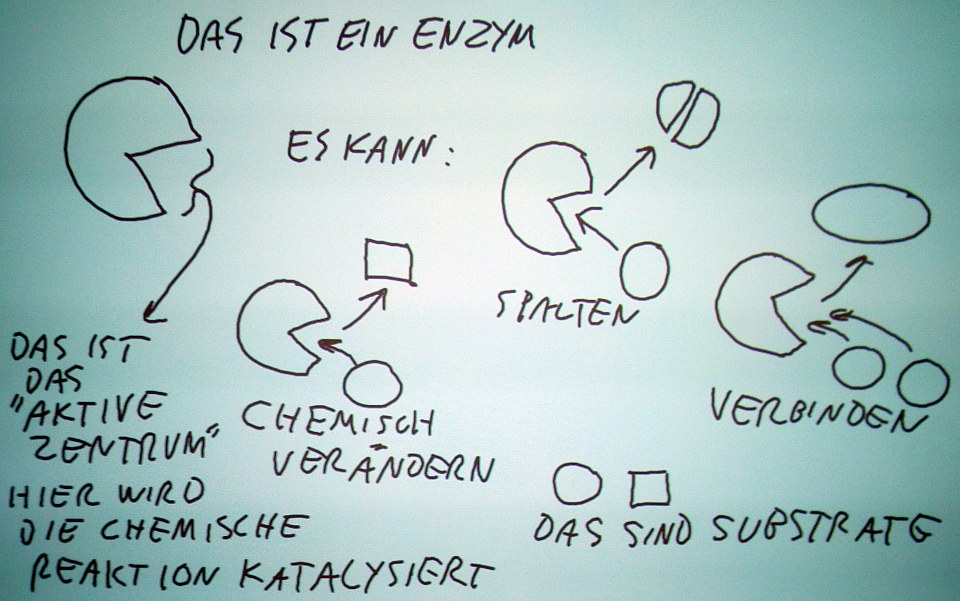 DAS IST EIN ENZYM
ES KANN:
SPALTEN
VERBINDEN
CHEMISCH
VERÄNDERN
DAS IST
DAS
"AKTIVE
ZENTRUM"
HIER WIRD
DIE CHEMISCHE
REAKTION KATALYSIERT
DAS SIND SUBSTRATE